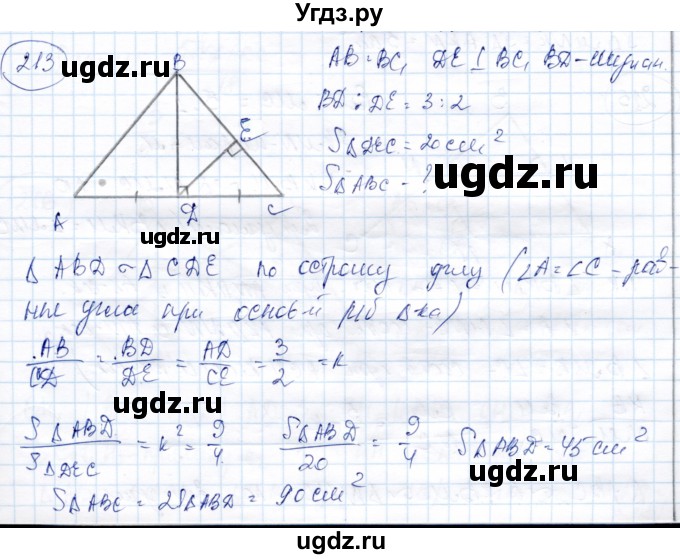 Угдз.ру
213
ugdz.ru
B
E
A
D
C
AB = BC, DE ⊥ BC, BD – медиан.
BD : DE = 3 : 2
S△DEC = 20 см²
S△ABC – ?
ugdz.ru
△ABD ~ △CDE по острому углу (∠A = ∠C – рав-
ные углы при основ-й р/б △-ка)
ugdz.ru
AB/CD = BD/DE = AD/CE = 3/2 = k
ugdz.ru
S△ABD/S△DEC = k² = 9/4 S△ABD/20 = 9/4 S△ABD = 45 см²
S△ABC = 2S△ABD = 90 см²
ugdz.ru